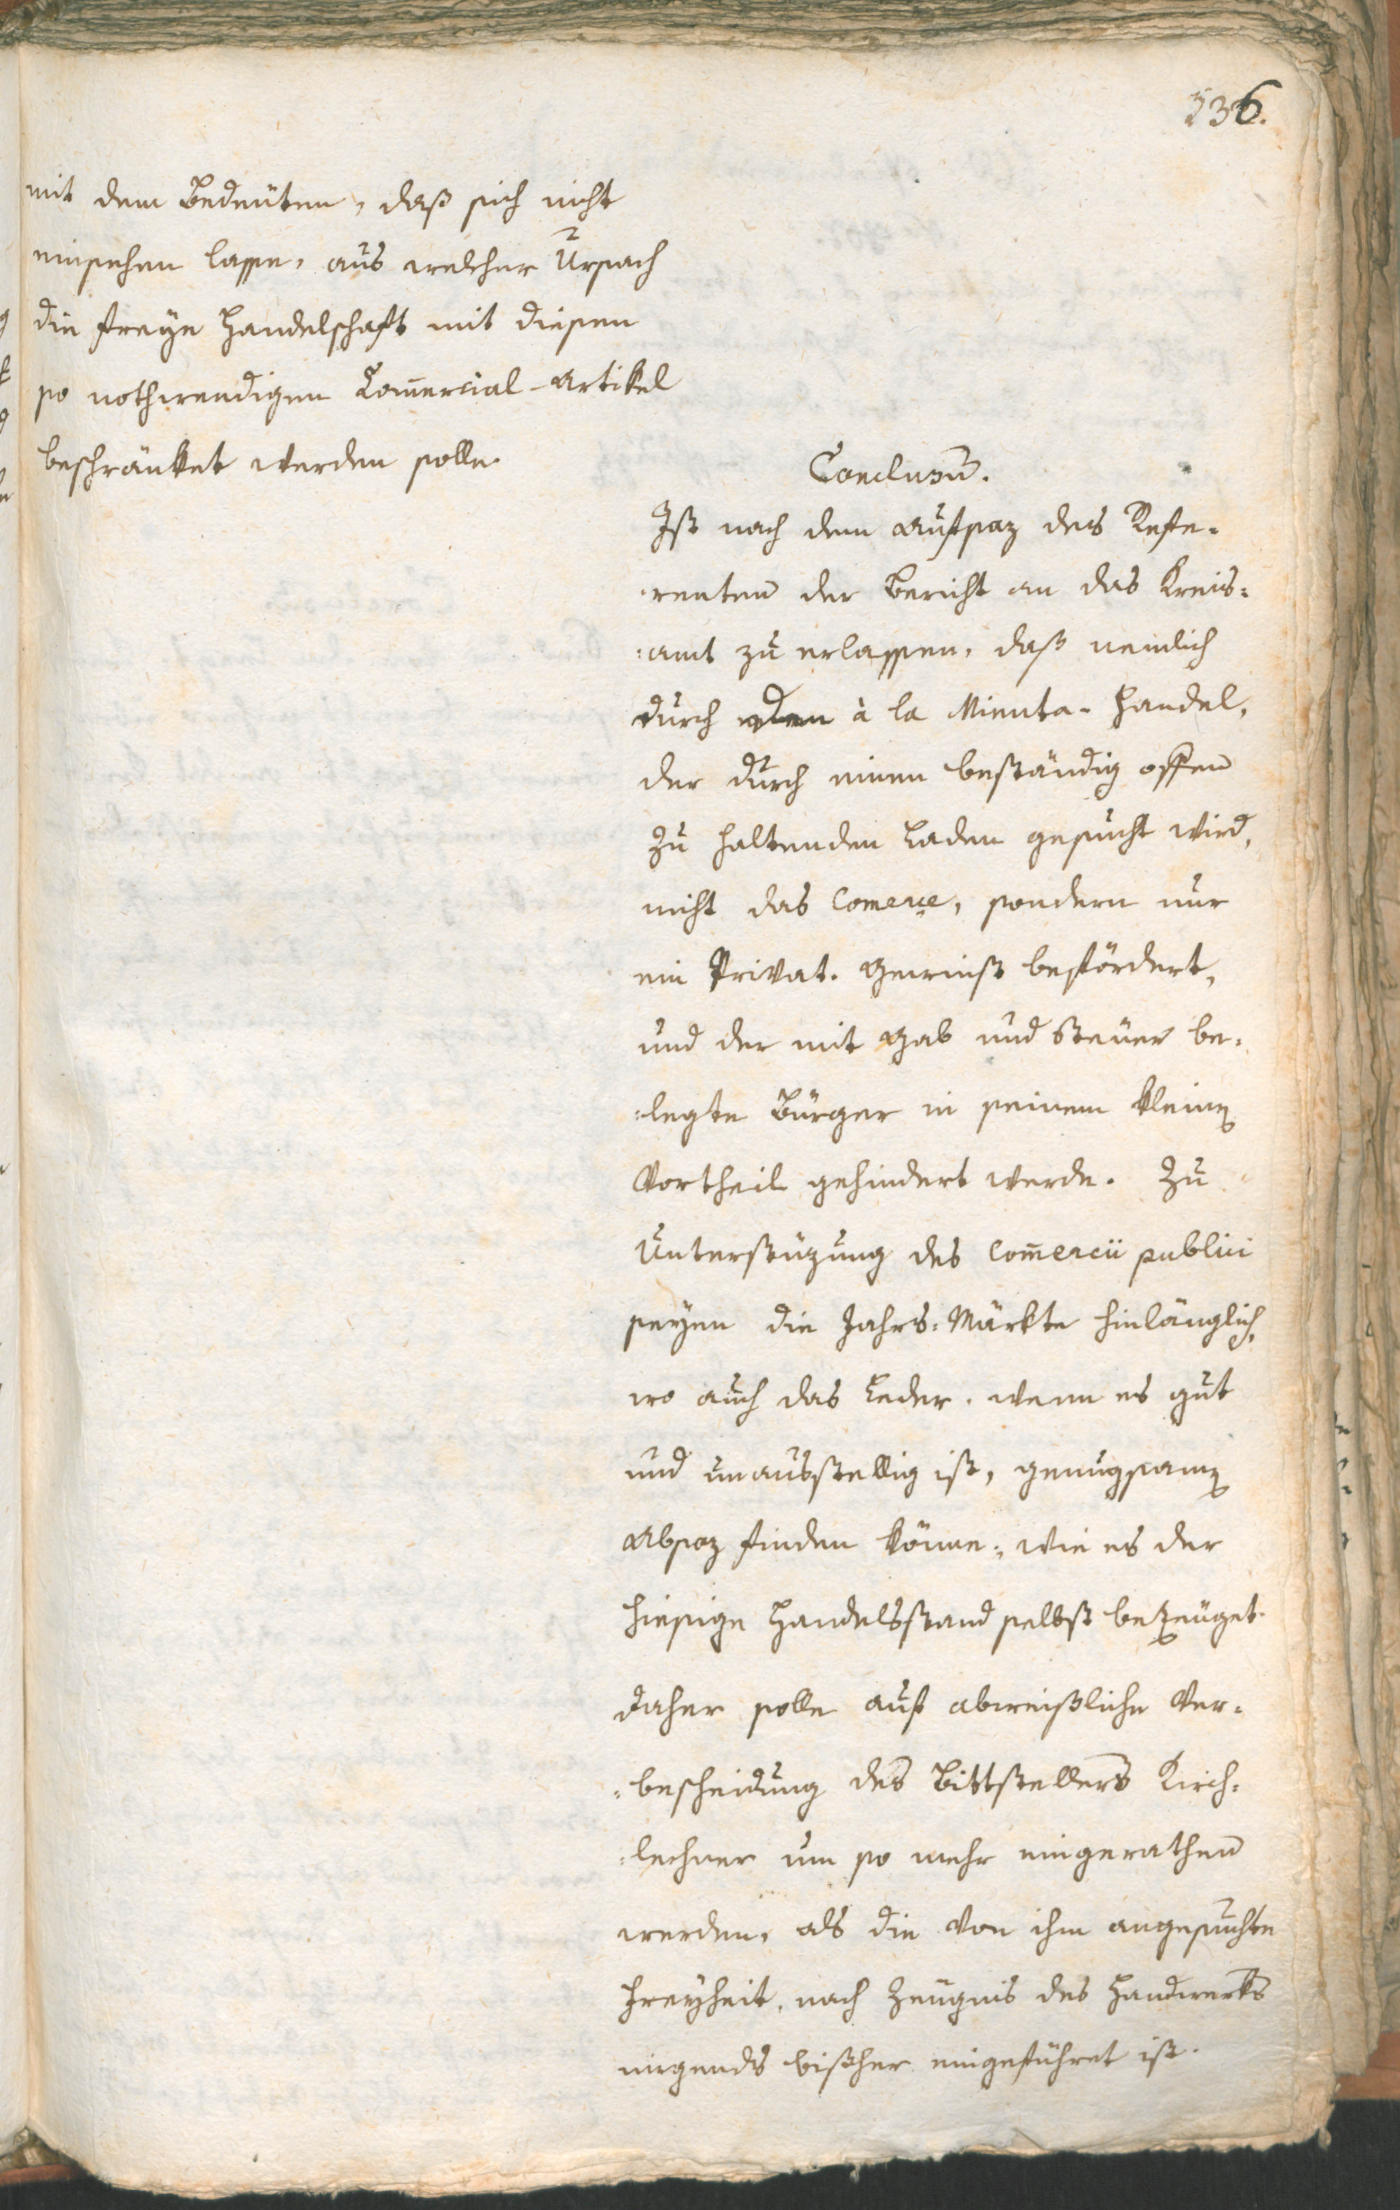 536.
mit dem Bedeüten, daß sich nicht
einsehen lasse, aus welcher Ursach
die freÿe Handelschaft mit diesen
so nothwendigen Com̄ercial-Artikel
beschränket werden solle.
Conclusum̄.
Ist nach dem Aufsaz des Refe-
renten der Bericht an das Kreis-
amt zu erlassen, daß nemlich
durch den à la Minuta- Handel,
der durch einen beständig offen
zu haltenden Laden gesucht wird,
nicht das Comerçe, sondern nur
ein Privat- Gewinst befördert,
und der mit Gab und Steuer be-
legte Bürger in seinem kleinen
Vortheil gehindert werde. Zu
Unterstüzung des Com̄ercii publici
seÿen die Jahrs-Märkte hinlänglich,
wo auch das Leder, wenn es gut
und unausstellig ist, genugsamen
Absaz finden könne, wie es der
hiesige Handelsstand selbst bezeuget.
Daher solle auf abweißliche Ver-
bescheidung des Bittstellers Kirch-
lechner um so mehr eingerathen
werden, als die von ihm angesuchte
Freÿheit, nach Zeugnis des Handwerks
nirgends bißher eingeführet ist.